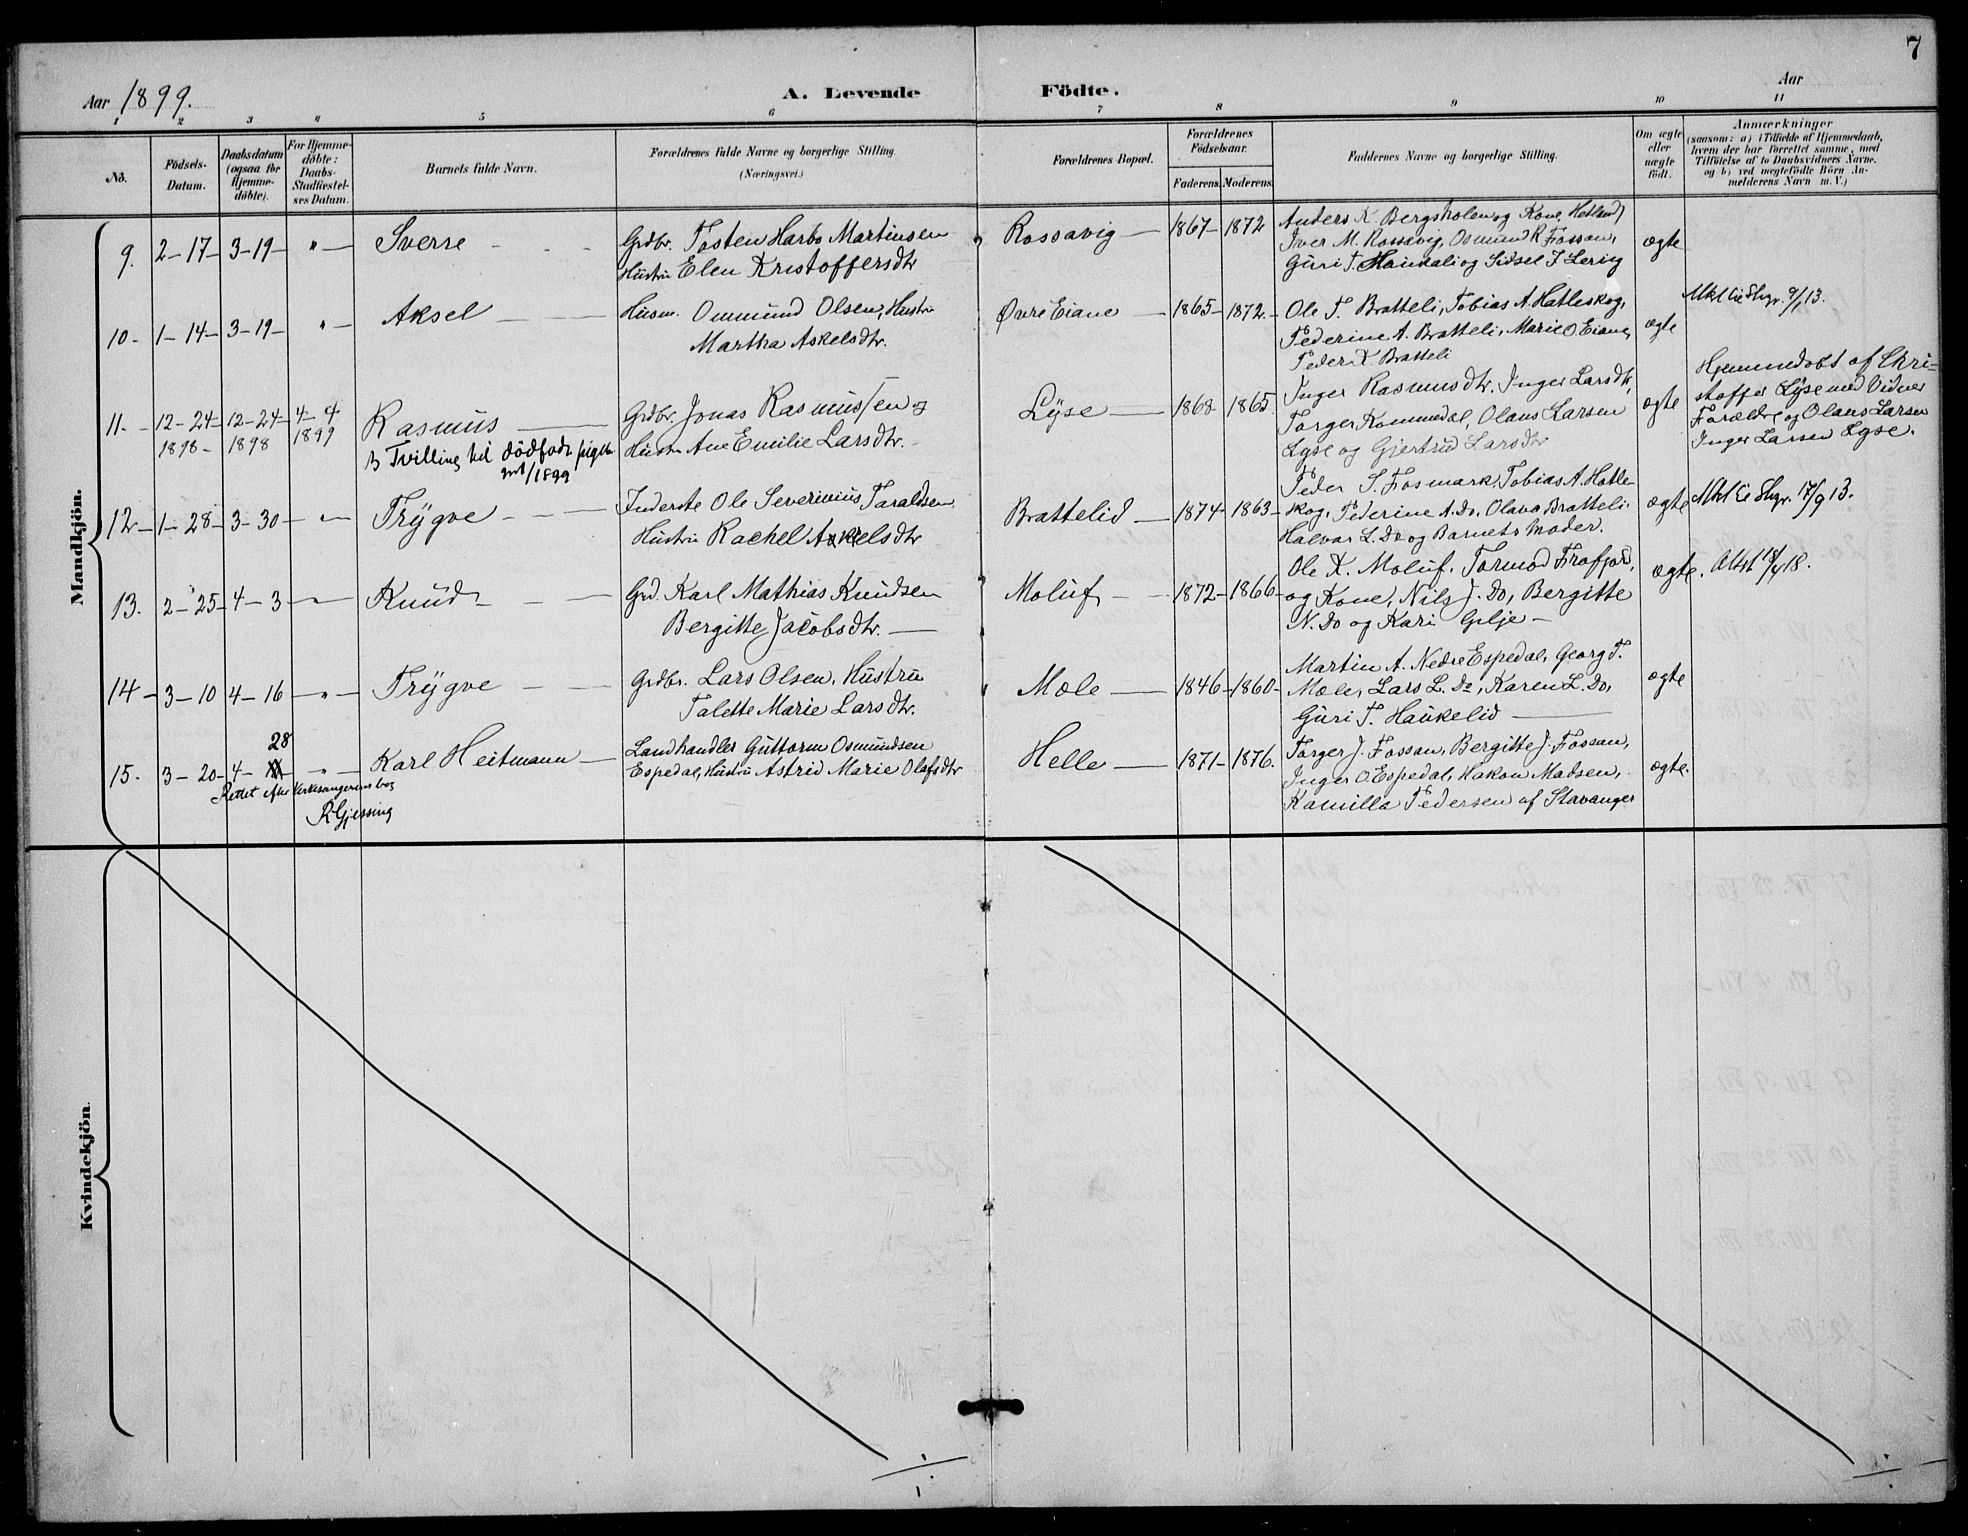 7
Aar 1899.
A. Levende Födte.
Aar
1 2 3 4 5 6 7 8 9 10 11
No.
Födsels-Datum.
Daabsdatum (ogsaa for Hjemme-döbte).
For Hjemme-döbte: Daabs-Stadfæstel-ses Datum.
Barnets fulde Navn.
Forældrenes fulde Navne og borgerlige Stilling.
(Næringsvei.)
Forældrenes Bopæl.
Forældrenes Födselsaar.
Faderens. Moderens.
Faddernes Navne og borgerlige Stilling.
Om ægte eller uægte födt.
Anmærkninger
(saasom: a) i Tilfælde af Hjemmedaab,
hvem der har forrettet samme, med
Tilföielse af to Daabsvidners Navne.
og b) ved uægtefödte Börn An-
melderens Navn m. V.)
Mandkjön.
9. 2-17- 3-19- " - Sverre
Grdbr. Tosten Harbo Martinsen
Hustru Elen Kristoffersdtr
Rossavig 1867- 1872
Anders K. Bergsholen og Kone, Hetland,
Iver M. Rossavig, Osmund R Fossan,
Guri T. Haukali og Sidsel J Lerig
ægte
10- 1-14- 3-19- " - Aksel
Husm. Ommund Olsen, Hustru
Martha Askelsdtr.
Øvre Eiane 1865- 1872.
Ole T. Bratteli, Tobias A. Hatleskog,
Pederine A. Bratteli, Marie O Eiane,
Peder K Bratteli
ægte
11. - 12-24- 12-24- 4-4
1898- 1898 1899
Rasmus
B Tvilling til dödfödt pige
1899
Grdbr. Jonas Rasmussen og
Hustru Ane Emilie Larsdtr.
Lyse 1868- 1865.
Inger Rasmusdtr, Inger Larsdtr,
Torger Kommedal, Olaus Larsen
Lyse og Gjertrud Larsdtr
ægte
Hjemmedøbt af Kri-
stoffer Lyse med Vidner
Forældre og Olaus Larsen
Inger Larsen Lyse.
12- 1-28- 3-30- " - Trygve
Inderste Ole Severinius Taraldsen
Hustru Rachel Askelsdtr
Brattelid 1874- 1863-
Peder S. Fosmark, Tobias A. Hatle-
skog, Pederine A. Do, Olava Bratteli,
Halvar L. Do og Barnets Moder.
ægte
17/9 13.
13. 2-25- 4-3 Knud
Grd. Karl Mathias Knudsen
Bergitte Jacobsdtr.
Moluf 1872- 1866-
Ole K. Moluf, Tormod Frafjord,
og Kone, Nils J. Do, Bergitte
N. Do og Kari Gilje -
ægte.
14- 3-10 4-16 - " - Trygve
Grdbr. Lars Olsen, Hustru
Talette Marie Larsdtr.
Mæle 1846- 1860-
Martin A. Nedre Espedal, Georg T.
Mæle, Lars L. Do, Karen L. Do,
Guri T. Haukelid
ægte
28
15. 3-20- 4- - " - Karl Heitmann
Rettet efter Kirkesangerens bog
R Gjessing
Landhandler Guttorm Osmundsen
Espedal, Hustru Astrid Marie Olafsdtr
Helle 1871- 1876.
Torger J. Fossan, Bergitte J. Fossan,
Inger O. Espedal, Hakon Madsen,
Kamilla Pedersen af Stavanger
ægte.
Kvindekjön.